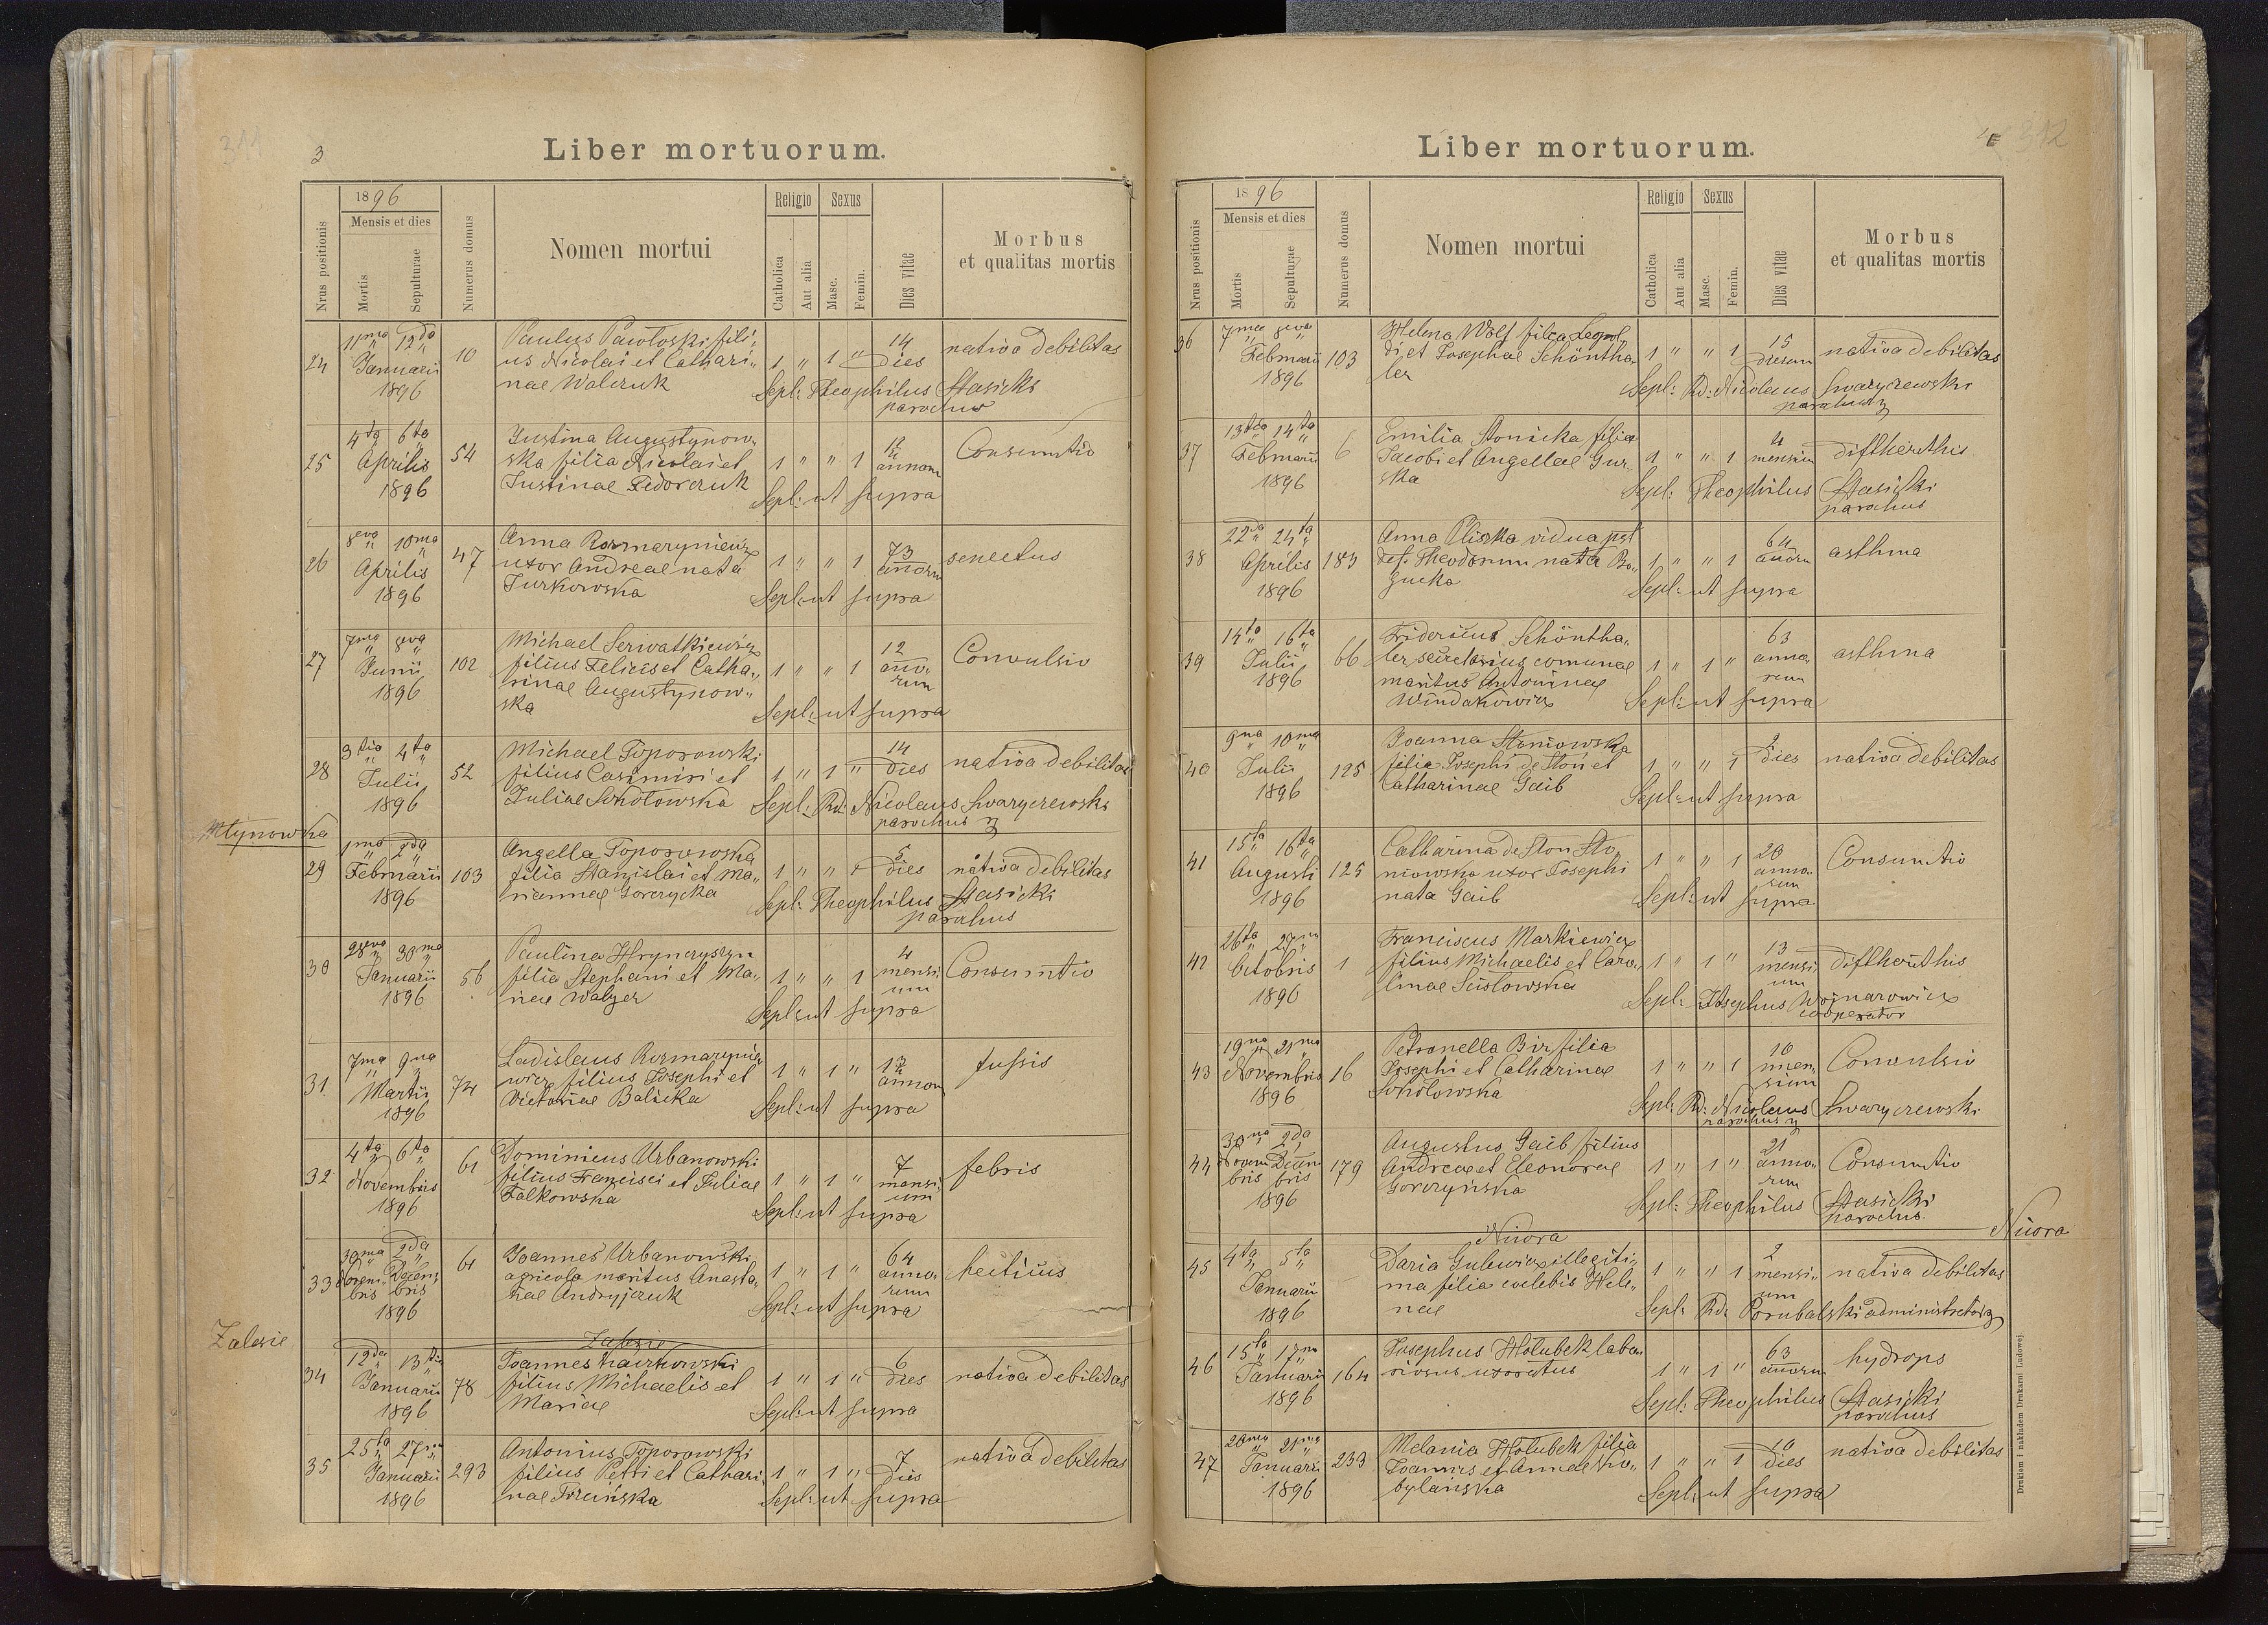 311
3
Liber mortuorum.
Nrus positionis
1896
Mensis et dies
Mortis
Sepulturae
Numerus domus
Nomen mortui
Religio
Catholica
Aut alia
Sexus
Masc.
Femin.
Dies vitae
Morbus
et qualitas mortis
24
11ma 12da
Januarii
1896
10
Paulus Pawłoski fili-
us Nicolai et Cathari-
nae Walczuk
1 " 1 "
14
dies
nativa debilitas
Sepl: Theophilus Stasicki
parochus
25
4ta 6ta
Aprilis
1896
54
Justina Augustynow-
ska filia Nicolai et
Justinae Fedorczuk
1 " " 1
annorum
Consumtio
Sepl: ut supra
26
8eva 10ma
Aprilis
1896
47
Anna Rozmarynowicz
uxor Andreae nata
Turkowska
1 " " 1
73
annorum
senectus
Sepl: ut supra
27
7ma 8eva
Junii
1896
102
Michael Serwatkiewicz
filius Felicis et Catha-
rinae Augustynow-
ska
1 " " 1
12
anno-
rum
Convulsio
Sepl: ut supra
28
3tia 4ta
Julii
1896
52
Michael Toporowski
filius Casimiri et
Juliae Sokołowska
1 " 1 "
14
dies
nativa debilitas
Sepl: Rd: Nicolaus Swaryczewski
parochus
Młynowka
29
1ma 2da
Februarii
1896
103
Angella Toporowska
filia Stanislai et Ma-
riannae Gorczycka
1 " " 1
5
dies
nativa debilitas
Sepl: Theophilus Stasicki
parochus
30
28eva 30ma
Januarii
1896
56
Paulina Hrynczyszyn
filia Stephani et Ma-
riae Walzer
1 " " 1
4
mensi-
um
Consumtio
Sepl: ut supra
31.
7ma 9na
Martii
1896
74
Ladislaus Rozmaryno-
wicz filius Josephi et
Victoriae Balicka
1 " 1 "
annorum
tussis
Sepl: ut supra
32
4ta 6ta
Novembris
1896
61
Dominicus Urbanowski
filius Francisci et Juliae
Falkowska
1 " 1 "
7
mensi-
um
febris
Sepl: ut supra
33
30ma 2da
Novem- Decem-
bris bris
1896
61
Joannes Urbanowski
agricola maritus Anasta-
siae Andryjczuk
1 " 1 "
64
anno-
rum
hecticus
Sepl: ut supra
Zalesie
Zalesie
34
12da 13tia
Januarii
1896
78
Joannes Kaczkowski
filius Michaelis et
Mariae
1 " 1 "
6
dies
nativa debilitas
Sepl: ut supra
35
25ta 27ma
Januarii
1896
293
Antonius Toporowski
filius Petri et Cathari-
nae
1 " 1 "
7
dies
nativa debilitas
Sepl: ut supra
4
312
Liber mortuorum.
Nrus positionis
1896
Mensis et dies
Mortis
Sepulturae
Numerus domus
Nomen mortui
Religio
Catholica
Aut alia
Sexus
Masc.
Femin.
Dies vitae
Morbus
et qualitas mortis
36
7ma 8eva
Februarii
1896
103
Helena Wolf filia Leopol-
di et Josephae Schöntha-
ler
1 " " 1
15
dierum
nativa debilitas
Sepl: Rd: Nicolaus Swaryczewski
parochus
37
13tia 14ta
Februarii
1896
6
Emilia Słonicka filia
Jacobi et Angellae Gur-
ska
1 " " 1
4
mensium
diftherithis
Sepl: Theophilus Stasicki
parochus
38
22da 24ta
Aprilis
1896
183
Anna Pliszka vidua pst
def. Theodorum nata Ro-
gucka
1 " " 1
64
annorum
asthma
Sepl: ut supra
39
14ta 16ta
Julii
1896
66
Fridericus Schöntha-
ler secretarius comunae
maritus Antoninae
Windakiewicz
1 " 1 "
63
anno-
rum
asthma
Sepl: ut supra
40
9na 10ma
Julii
1896
125
Joanna Słoniowska
filia Josephi de Słoń et
Catharinae Gaib
1 " " 1
2
dies
nativa debilitas
Sepl: ut supra
41
15ta 16ta
Augusti
1896
125
Catharina de Słoń Sło-
niowska uxor Josephi
nata Gaib
1 " " 1
20
anno-
rum
Consumtio
Sepl: ut supra
42
26ta 27ma
Octobris
1896
1
Franciscus Markiewicz
filius Michaelis et Caro-
linae Scisłowska
1 " 1 "
13
mensi-
um
diftherithis
Sepl: Josephus Wojnarowicz
cooperator
43
19na 21ma
Novembris
1896
16
Petronella Bir filia
Josephi et Catharinae
Sokołowska
1 " " 1
10
men-
sium
Convulsio
Sepl: Rd: Nicolaus Swaryczewski
parochus
44
30na 2da
Novem Decem
bris bris
1896
179
Augustus Gaib filius
Andreae et Eleonorae
Gorczyńska
1 " 1 "
21
anno-
rum
Consumtio
Sepl: Theophilus Stasicki
parochus.
Niwra
Niwra
45
4ta 5ta
Januarii
1896
Daria Gulewicz illegiti-
ma filia coelebis Hele-
nae
1 " " 1
2
mensi-
um
nativa debilitas
Sepl: Rd: Porubalski administrator
46
15ta 17ma
Januarii
1896
164
Josephus Hołubek labo-
riosus uxoratus
1 " 1 "
63
annorum
hydrops
Sepl: Theophilus Stasicki
parochus
47
20ma 21ma
Januarii
1896
233
Melania Hołubek filia
Joannis et Annae Ko-
bylańska
1 " " 1
10
dies
nativa debilitas
Sepl: ut supra
Drukiem i nakładem Drukarni Ludowej.